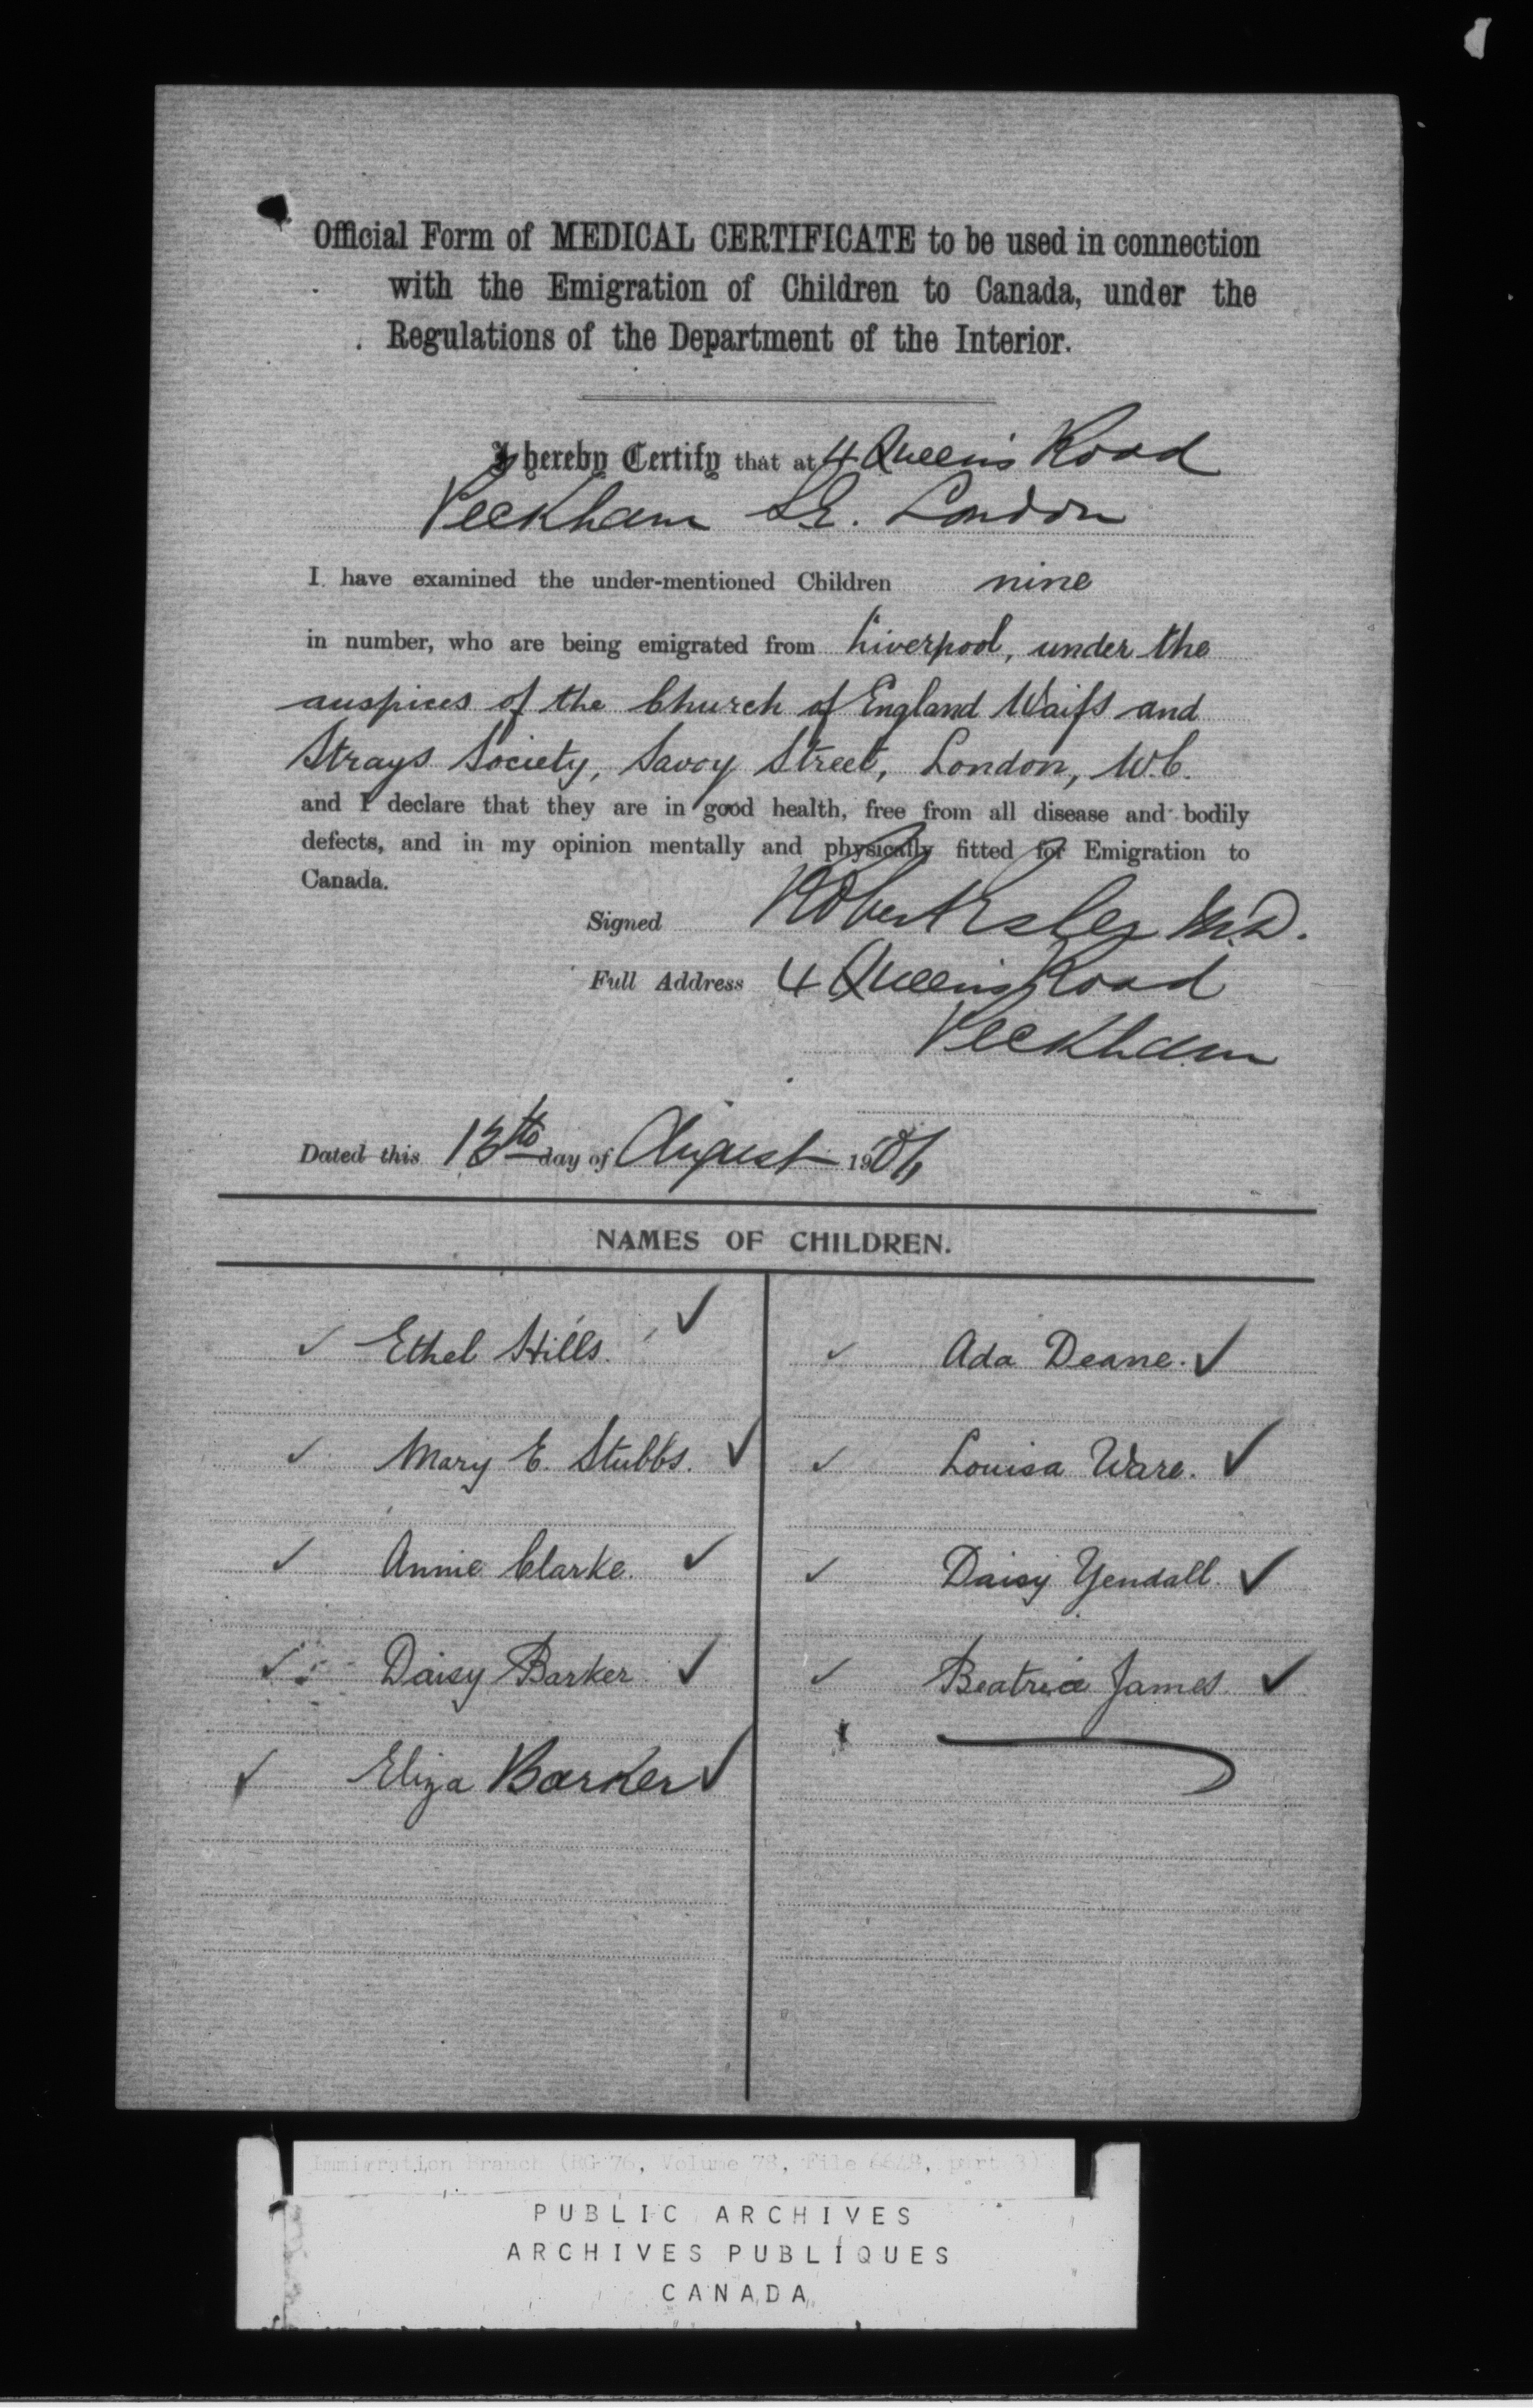 Official Form of MEDICAL CERTIFICATE to be used in connection
with the Emigration of Children to Canada, under the
Regulations of the Department of the Interior.
I hereby Certify that at 4 Queen's Road
Peckham S.E. London
I have examined the under-mentioned Children nine
in number, who are being emigrated from Liverpool, under the
auspices of the Church of England Waifs and
Strays Society, Savoy Street, London, W.C.
and I declare that they are in good health, free from all disease and bodily
defects, and in my opinion mentally and physically fitted for Emigration to
Canada.
Signed Robert Esler M.D.
Full Address 4 Queen's Road
Peckham
Dated this 13th day of August 1906
NAMES OF CHILDREN.
✓ Ethel Hills. ✓
✓ Mary E. Stubbs. ✓
✓ Annie Clarke. ✓
✓ Daisy Barker ✓
✓ Eliza Barker ✓
✓ Ada Deane. ✓
✓ Louisa Ware. ✓
✓ Daisy Yendall. ✓
✓ Beatrice James. ✓
Immigration Branch (RG 76, Volume 78, File 6648, part 3)
PUBLIC ARCHIVES
ARCHIVES PUBLIQUES
CANADA